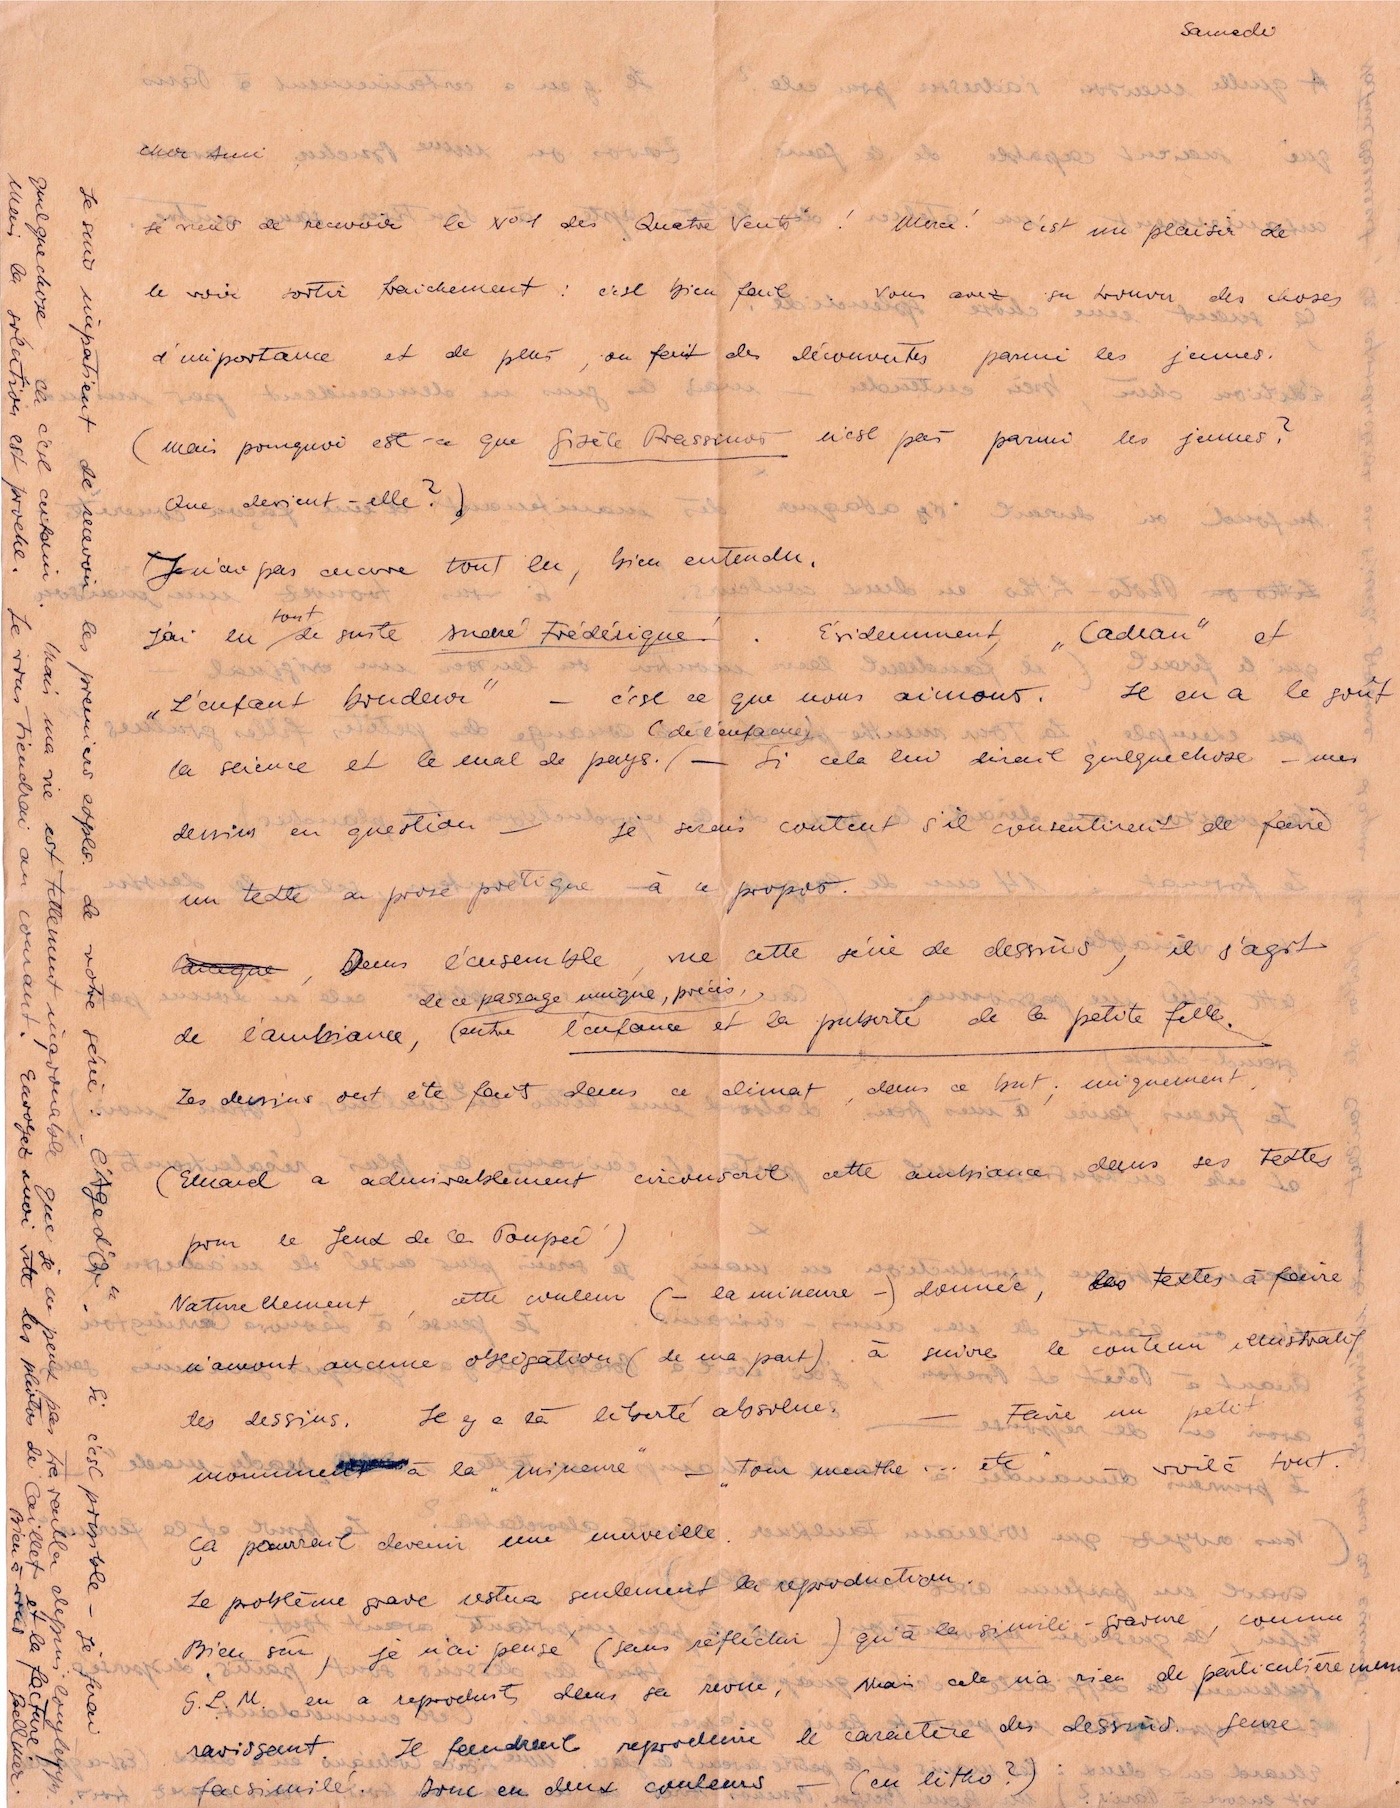 Samedi
cher Ami
je viens de recevoir le No 1 des Quatre Vents ! Merci ! c'est un plaisir de
le voir sortir fraichement : c'est bien fait . Vous avez su trouver des choses
d'importance et de plus, on fait des découvertes parmi les jeunes.
(Mais pourquoi est-ce que Gisèle Prassinos n'est pas parmi les jeunes?
Que devient-elle?)
Je n'ai pas encore tout lu, bien entendu.
J'ai lu tout de suite André Frédérique! . Evidemment, „Cadeau" et
„L'enfant boudeur" – c'est ce que nous aimons. Il en a le goût
la science et le mal de pays. (de l'enfance) – Si cela lui dirait quelquechose – mes
dessins en question – je serais content s'il consentirent de faire
un texte en prose poétique – à ce propos.
, Dans l'ensemble, vue cette série de dessins, il s'agit
de l'ambiance, de ce passage unique, précis, (entre l'enfance et la puberté de la petite fille.
Les dessins ont été faits dans ce climat, dans ce but, uniquement.
(Eluard a admirablement circonscrit cette ambiance dans ses textes
pour le Jeux de la Poupée)
Naturellement, cette couleur (– la mineure –) donnée, les textes à faire
n'auront aucune obligation (de ma part) à suivre le contenu illustratif
des dessins. Il y a là liberté absolue. — Faire un petit
monument à la „mineure" – „Tour menthe ... etc" voilà tout.
ça pourrait devenir une merveille.
Le problème grave restera seulement la reproduction.
Bien sûr, je n'ai pensé (sans réfléchir) qu'à la simili-gravure, comme
G.L.M. en a reproduits dans sa revue, Mais cela n'a rien de particulièrement
ravissant. Il faudrait reproduire le caractère des dessins. Genre
facsimilé. Donc en deux couleurs – (en litho?)
Je suis impatient de recevoir les premiers expls. de votre série : "l'Age d'Or". Si c'est possible – je ferai
quelquechose là c'est certain. Mais ma vie est tellement inavouable que je ne peux pas travailler depuis longtemps.
Mais la solution est proche. Je vous tiendrai au courant. Envoyez moi vite les photos de Caillet et la facture.
Bien à vous Bellmer.